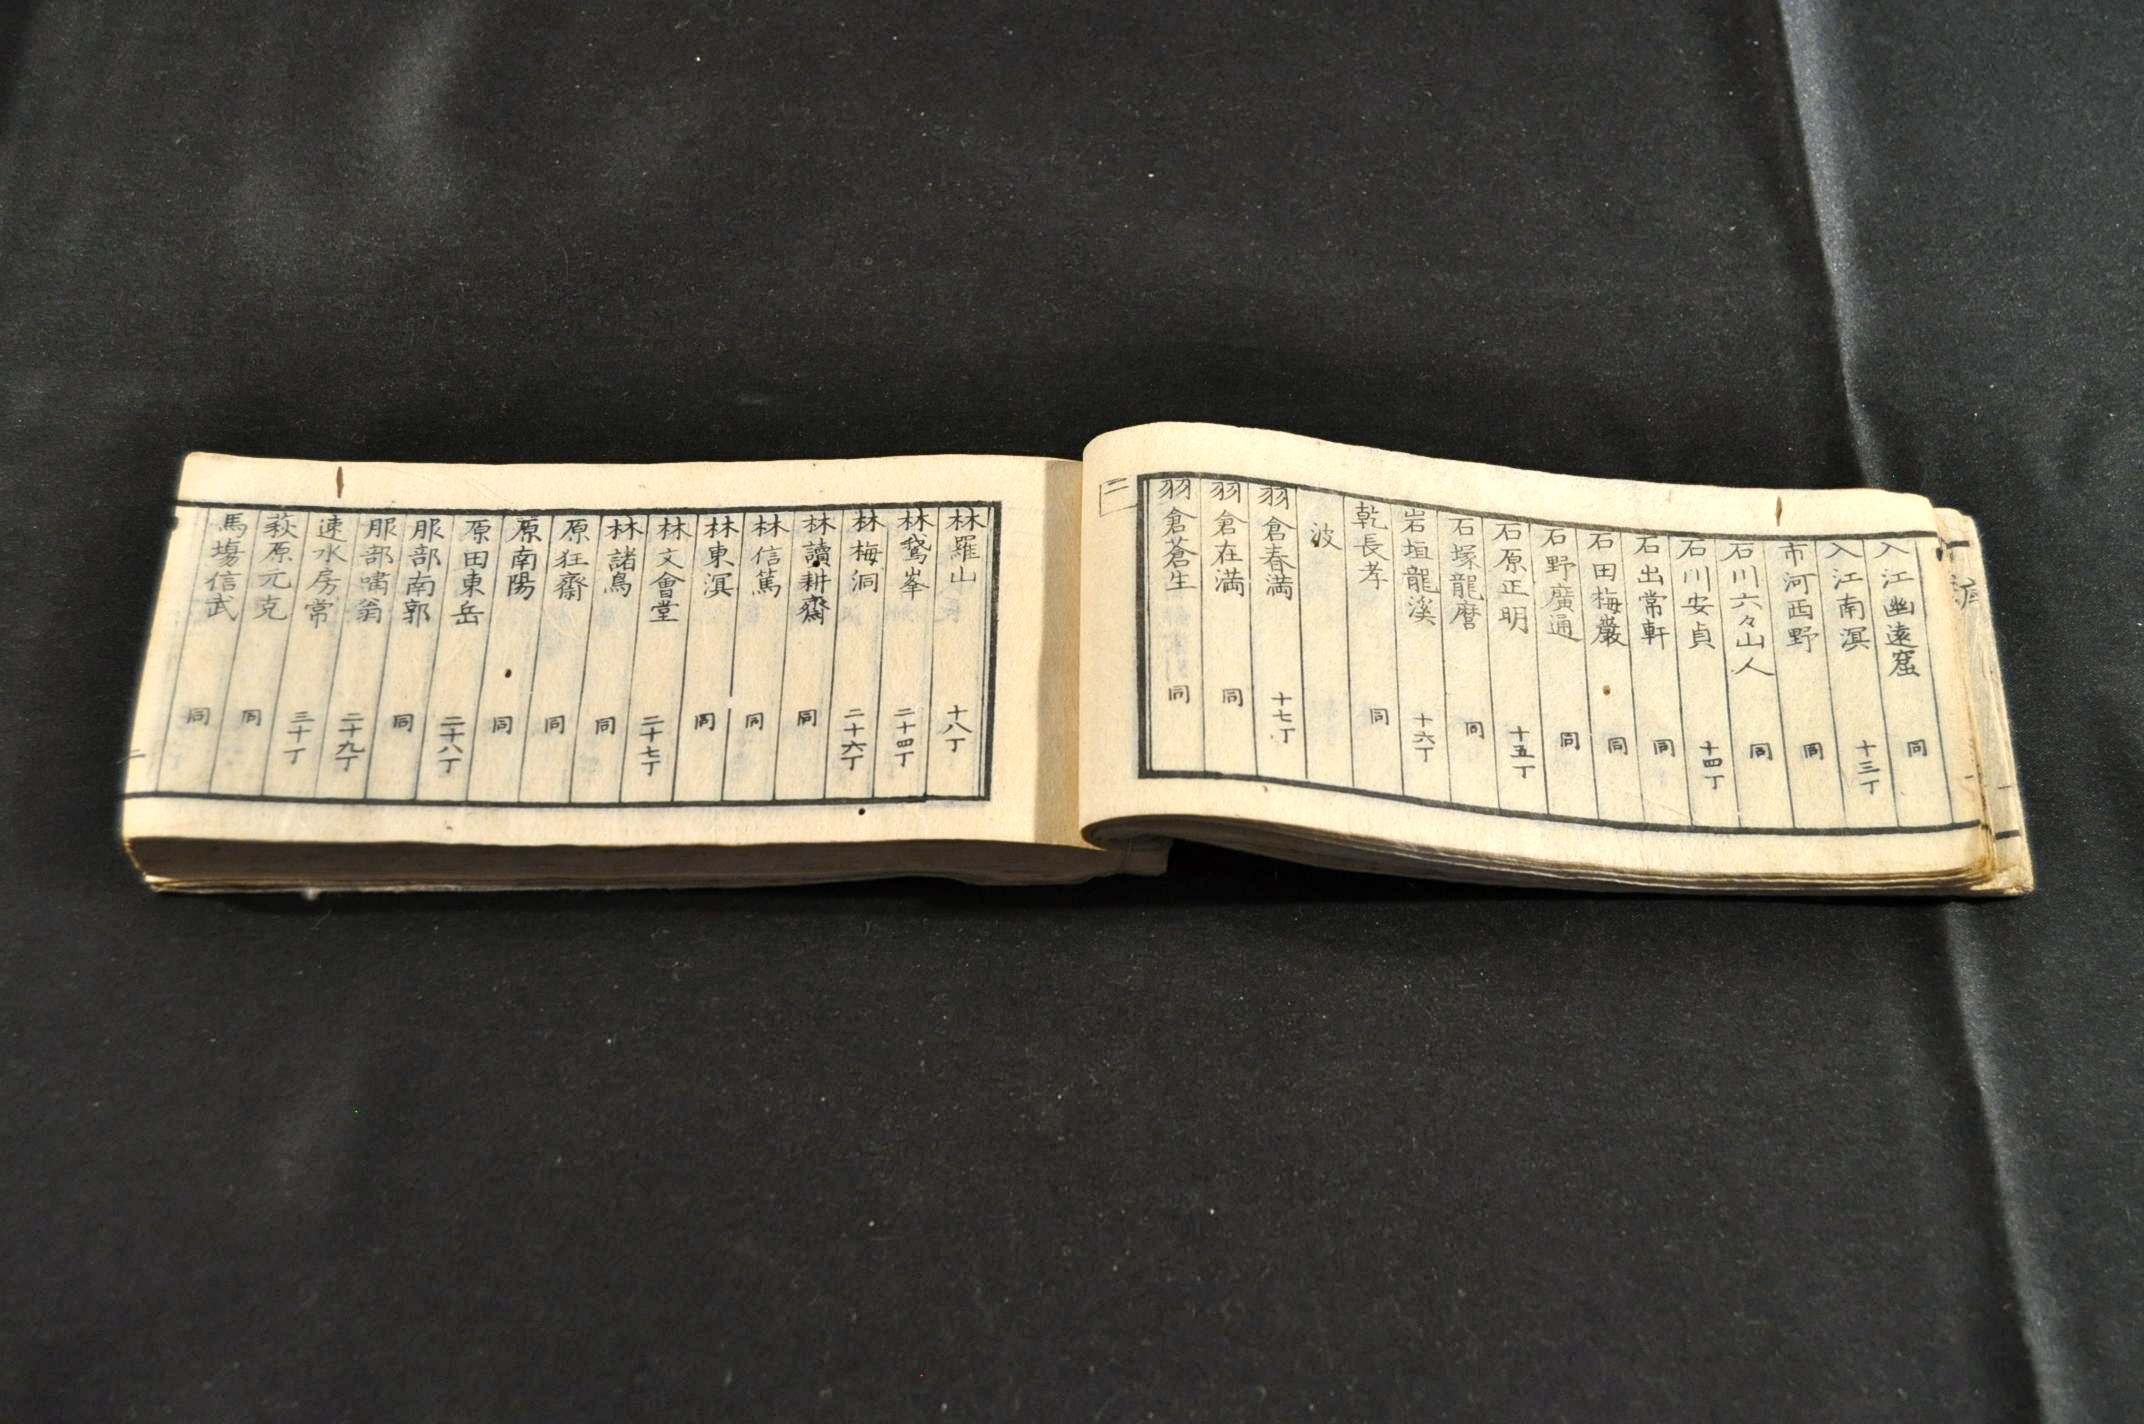 入江幽遠窟 同
入江南溟 十三丁
市河西野 同
石川六々山人 同
石川安貞 十四丁
石出常軒 同
石田梅巖 同
石野廣通 同
石原正明 十五丁
石塚龍麿 同
岩垣龍溪 十六丁
乾長孝 同
波
羽倉春満 十七丁
羽倉在満 同
羽倉蒼生 同
二
林羅山 十八丁
林鵞峯 二十四丁
林梅洞 二十六丁
林讀耕齋 同
林信篤 同
林東溟 同
林文會堂 二十七丁
林諸鳥 同
原狂齋 同
原南陽 同
原田東岳 二十八丁
服部南郭 同
服部嘯翁 二十九丁
速水房常 三十丁
萩原元克 同
馬塲信武 同